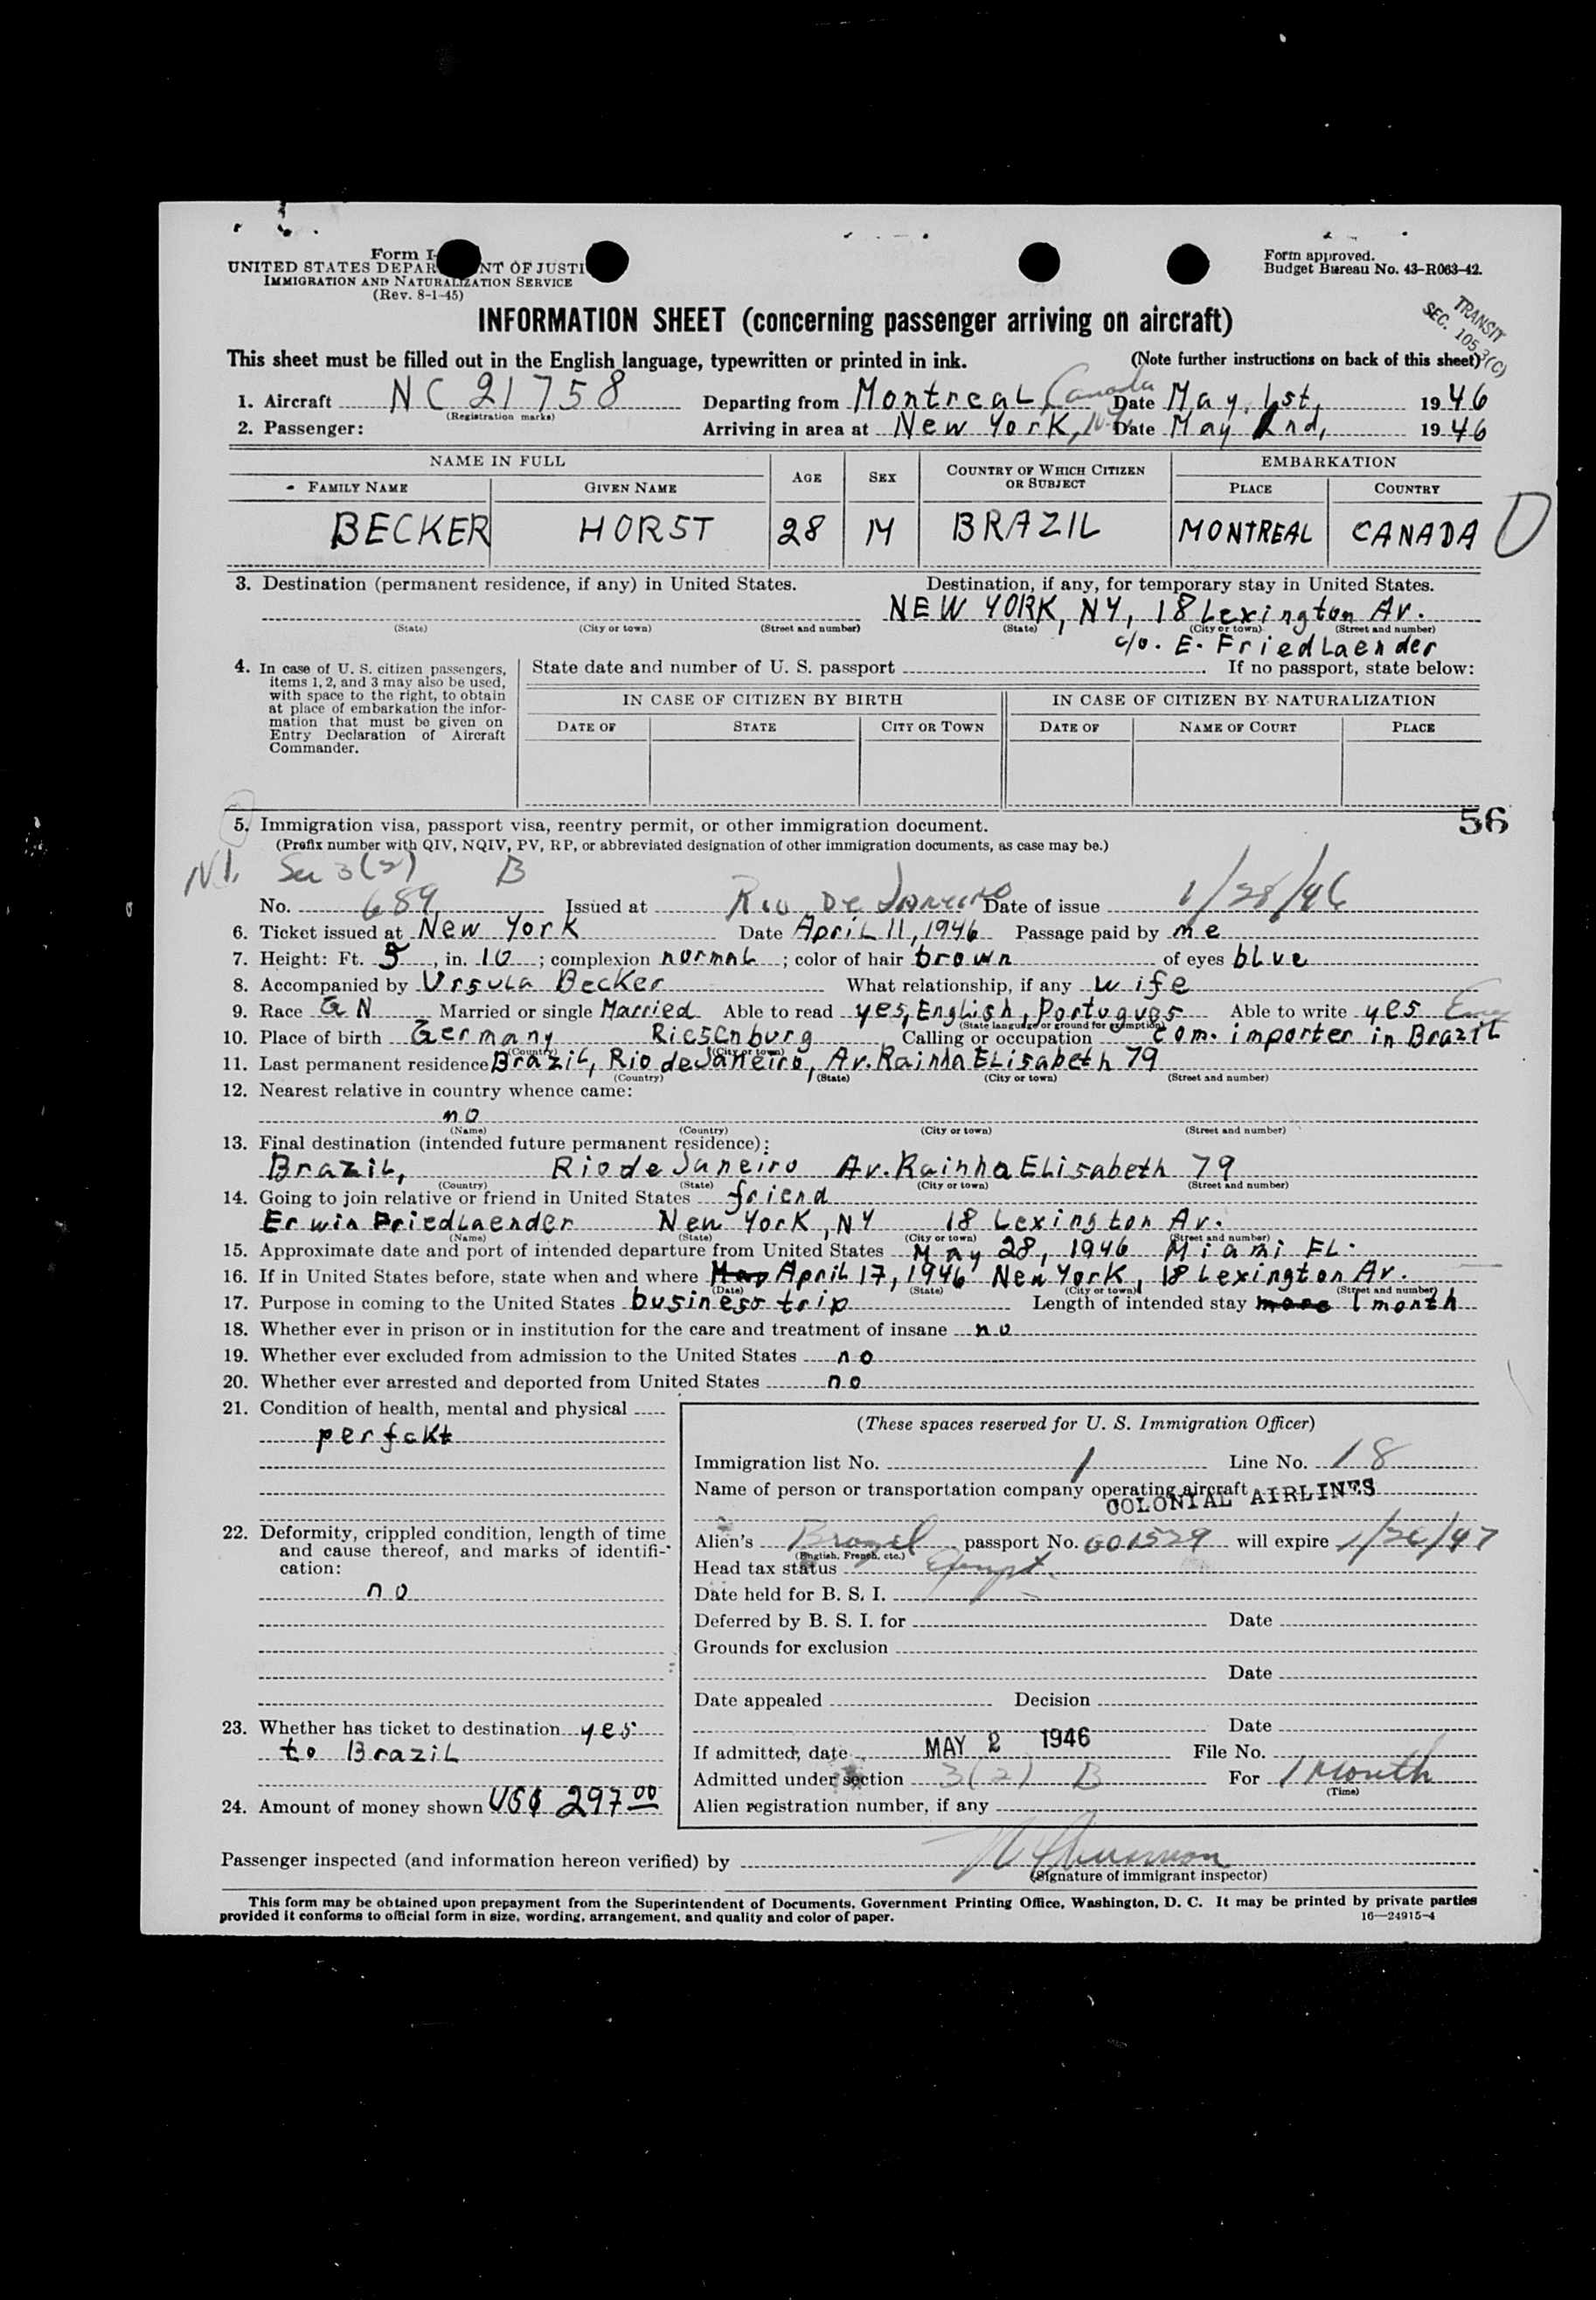 Form I-
UNITED STATES DEPAR NT OF JUSTI
IMMIGRATION AND NATURALIZATION SERVICE
(Rev. 8-1-45)
Form approved.
Budget Bureau No. 43-R063-42.
INFORMATION SHEET (concerning passenger arriving on aircraft)
TRANSIT
SEC. 105.3(C)
This sheet must be filled out in the English language, typewritten or printed in ink. (Note further instructions on back of this sheet)
1. Aircraft NC 21758 Departing from Montreal, Canada Date May, 1st, 1946
(Registration marks)
2. Passenger: Arriving in area at New York, N.Y. Date May 2nd, 1946
NAME IN FULL AGE SEX COUNTRY OF WHICH CITIZEN OR SUBJECT EMBARKATION
FAMILY NAME GIVEN NAME PLACE COUNTRY
BECKER HORST 28 M BRAZIL MONTREAL CANADA
3. Destination (permanent residence, if any) in United States. Destination, if any, for temporary stay in United States.
NEW YORK, NY, 18 Lexington Av.
(State) (City or town) (Street and number) (State) (City or town) (Street and number)
c/o. E. FriedLaender
4. In case of U. S. citizen passengers, items 1, 2, and 3 may also be used, with space to the right, to obtain at place of embarkation the information that must be given on Entry Declaration of Aircraft Commander.
State date and number of U. S. passport If no passport, state below:
IN CASE OF CITIZEN BY BIRTH IN CASE OF CITIZEN BY NATURALIZATION
DATE OF STATE CITY OR TOWN DATE OF NAME OF COURT PLACE
56
5. Immigration visa, passport visa, reentry permit, or other immigration document.
(Prefix number with QIV, NQIV, PV, RP, or abbreviated designation of other immigration documents, as case may be.)
N.I. Sec 3(2) B
No. 689 Issued at Rio De Janeiro Date of issue 1/28/46
6. Ticket issued at New York Date April 11, 1946 Passage paid by me
7. Height: Ft. 5, in. 10; complexion normal; color of hair brown of eyes blue
8. Accompanied by Ursula Becker What relationship, if any wife
9. Race GN Married or single Married Able to read yes, English, Portugues Able to write yes
(State language or ground for exemption)
10. Place of birth Germany Riesenburg Calling or occupation com. importer in Brazil
(Country) (City or town)
11. Last permanent residence Brazil, Rio de Janeiro, Av. Rainha Elisabeth 79
(Country) (State) (City or town) (Street and number)
12. Nearest relative in country whence came:
no
(Name) (Country) (City or town) (Street and number)
13. Final destination (intended future permanent residence):
Brazil, Rio de Janeiro Av. Rainha Elisabeth 79
(Country) (State) (City or town) (Street and number)
14. Going to join relative or friend in United States friend
Erwin FriedLaender New York, NY 18 Lexington Av.
(Name) (State) (City or town) (Street and number)
15. Approximate date and port of intended departure from United States May 28, 1946 Miami FL.
16. If in United States before, state when and where May April 17, 1946 New York, 18 Lexington Av.
(Date) (State) (City or town) (Street and number)
17. Purpose in coming to the United States business trip Length of intended stay 1 month
18. Whether ever in prison or in institution for the care and treatment of insane no
19. Whether ever excluded from admission to the United States no
20. Whether ever arrested and deported from United States no
21. Condition of health, mental and physical
perfekt
22. Deformity, crippled condition, length of time and cause thereof, and marks of identification:
no
23. Whether has ticket to destination yes
to Brazil
24. Amount of money shown US$ 297.00
(These spaces reserved for U. S. Immigration Officer)
Immigration list No. 1 Line No. 18
Name of person or transportation company operating aircraft COLONIAL AIRLINES
Alien's Brazil passport No. 001529 will expire 1/26/47
(English, French, etc.)
Head tax status Exempt.
Date held for B. S. I.
Deferred by B. S. I. for Date
Grounds for exclusion
Date
Date appealed Decision
Date
If admitted, date MAY 2 1946 File No.
Admitted under section 3(2) B For 1 Month
(Time)
Alien registration number, if any
Passenger inspected (and information hereon verified) by
(Signature of immigrant inspector)
This form may be obtained upon prepayment from the Superintendent of Documents, Government Printing Office, Washington, D. C. It may be printed by private parties
provided it conforms to official form in size, wording, arrangement, and quality and color of paper. 16—24915-4